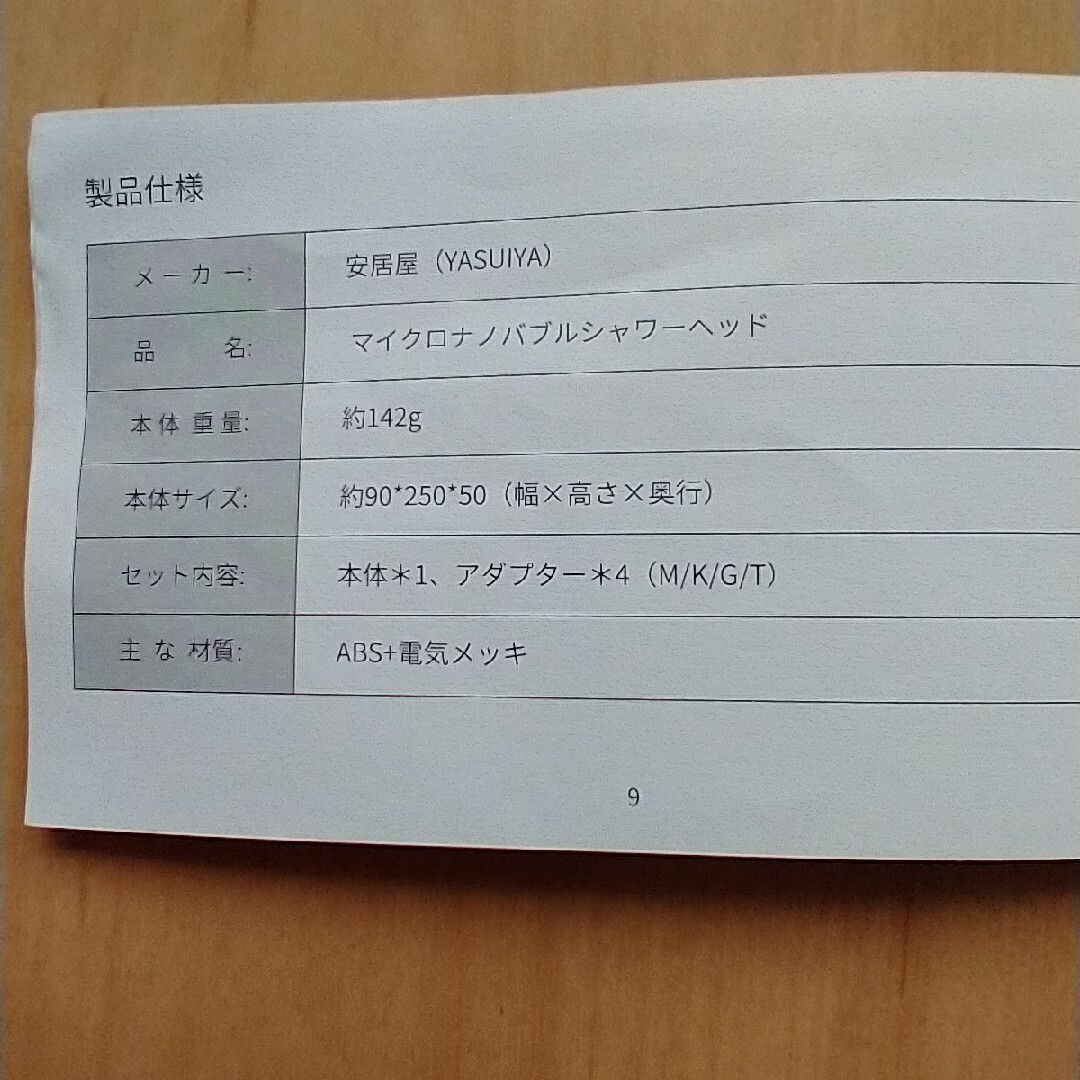 製品仕様
メーカー: 安居屋（YASUIYA）
品 名: マイクロナノバブルシャワーヘッド
本体重量: 約142g
本体サイズ: 約90*250*50（幅×高さ×奥行）
セット内容: 本体＊1、アダプター＊4（M/K/G/T）
主な材質: ABS+電気メッキ
9